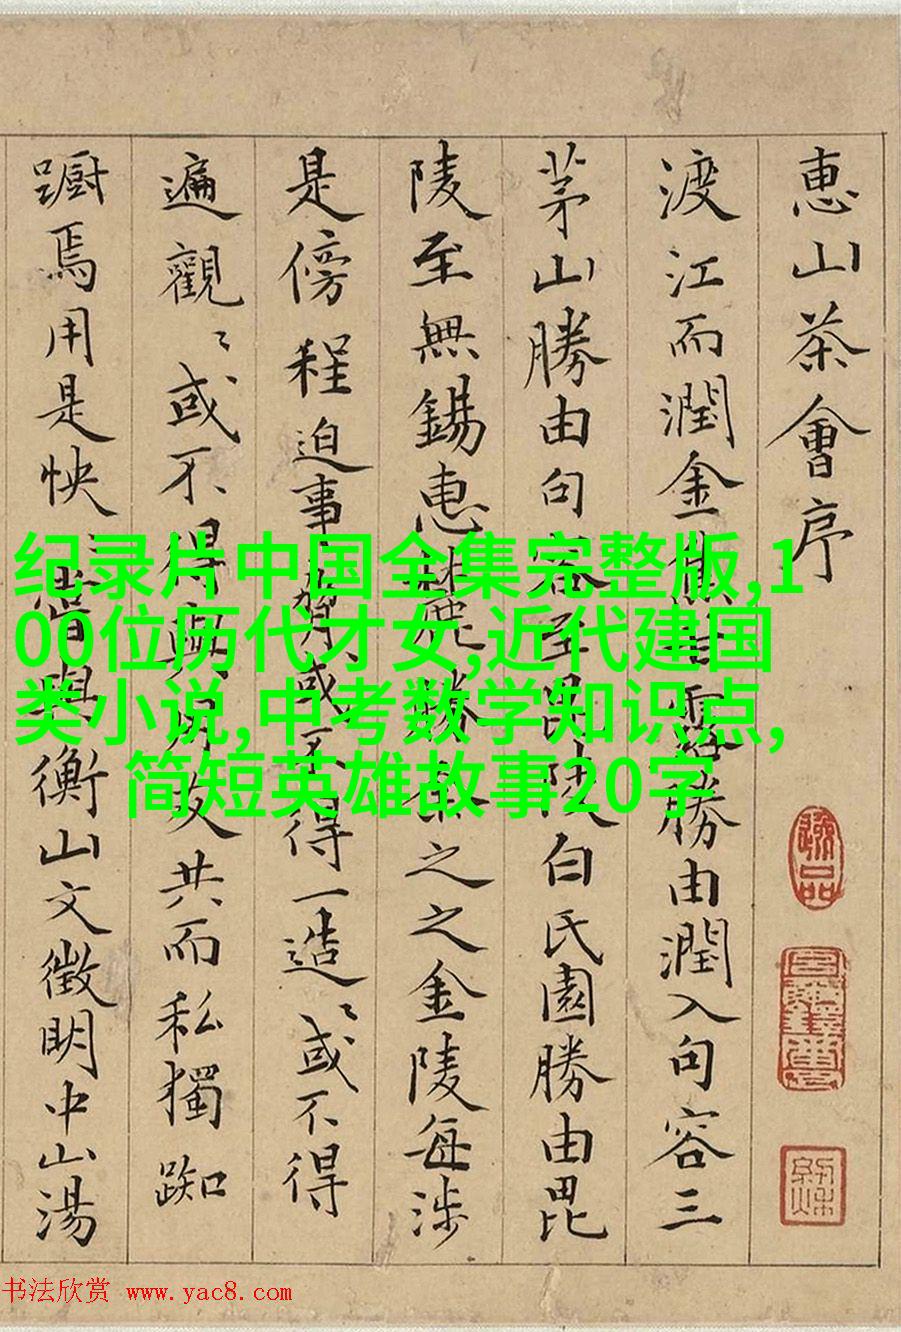 惠山茶會序
渡江而潤金焦甘露勝由潤入句容三
茅山勝由句容至毘陵白氏園勝由毘
陵至無錫惠麓數泉之之金陵每涉
是傍程迫事奪或不得一造〻或不得
遍觀〻或不得與朋友共而私獨踟
躕焉用是怏〻昔與衡山文徵明中山湯
纪录片中国全集完整版,1
00位历代才女,近代建国
类小说,中考数学知识点,
简短英雄故事20字
逸品
书法欣赏 www.yac8.com